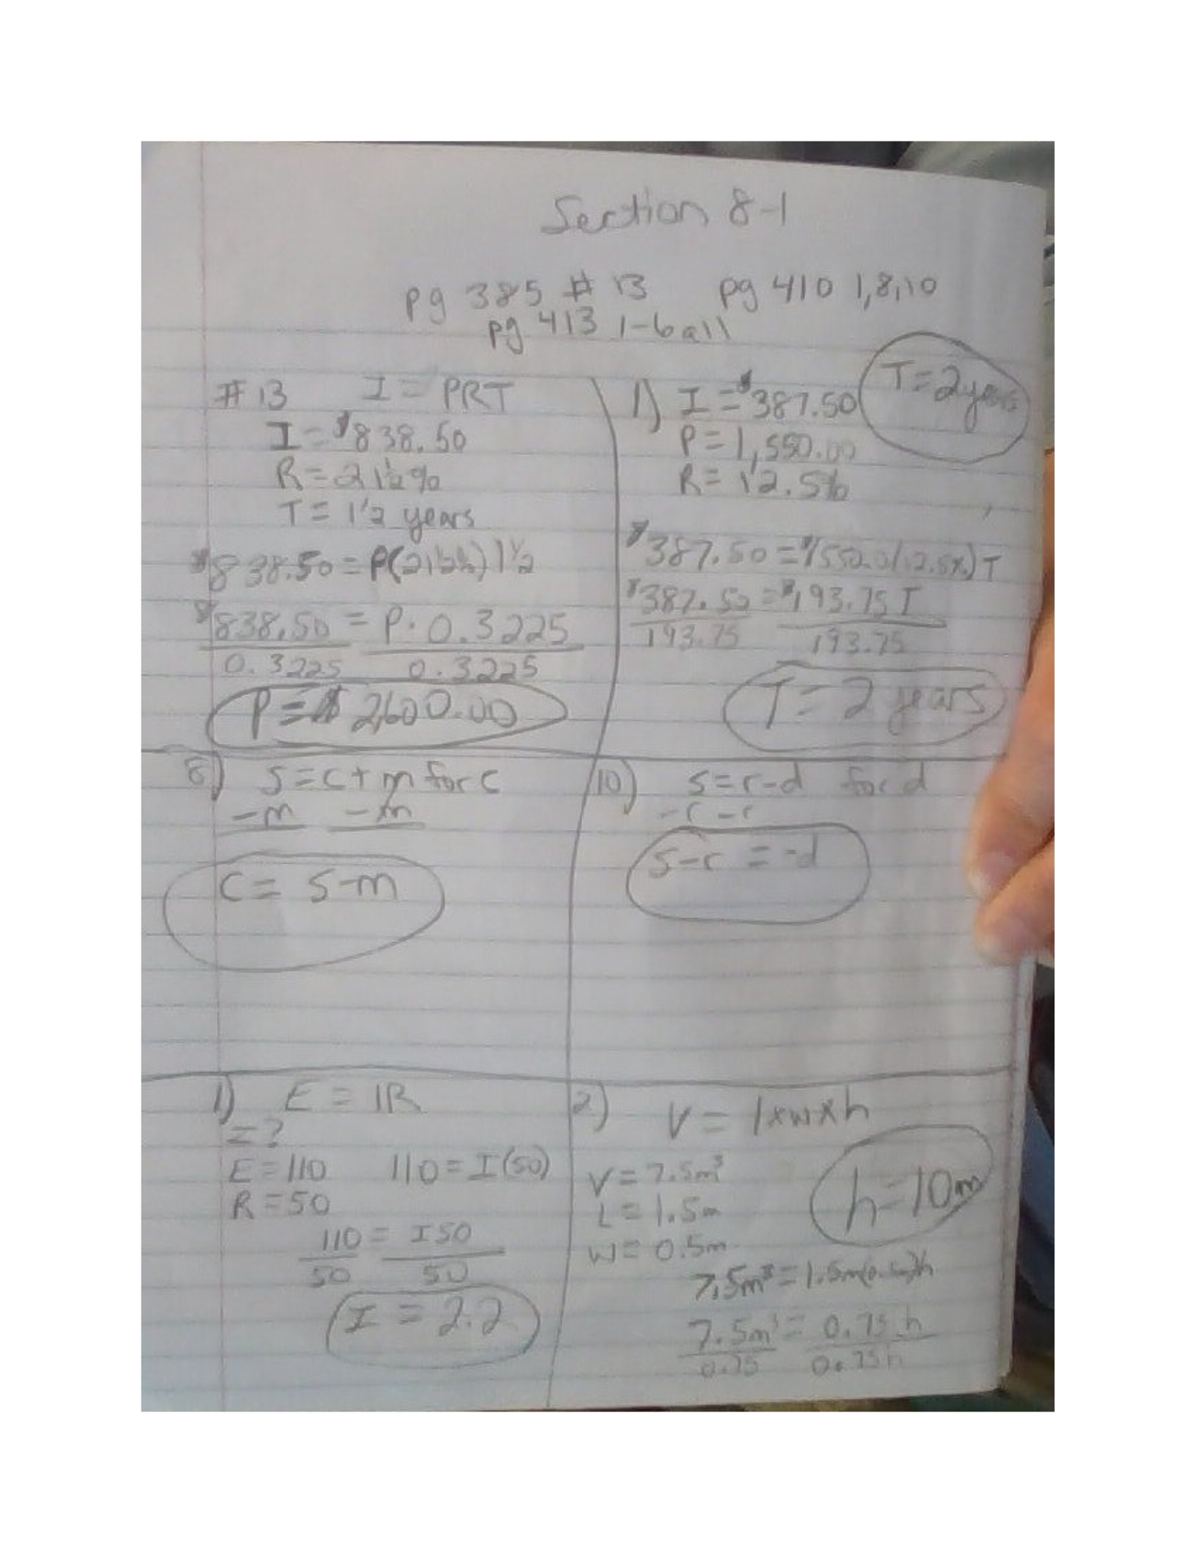 Section 8-1
pg 385 # 13 pg 410 1,8,10
pg 413 1-6 all
#13 I = PRT
I = $838.50
R = 21½%
T = 1½ years
$838.50 = P(21½%)1½
$838.50 = P · 0.3225
0.3225 0.3225
P = $2,600.00
1) I = $387.50
P = 1,550.00
R = 12.5%
T = 2 years
$387.50 = $1550.0(12.5%)T
$387.50 = $193.75 T
193.75 193.75
T = 2 years
8) S = C + m for C
-m -m
C = S-m
10) S = r-d for d
-r -r
S-r = -d
1) E = IR
I = ?
E = 110 110 = I(50)
R = 50
110 = I50
50 50
I = 2.2
2) V = l×w×h
V = 7.5m³
L = 1.5m
W = 0.5m
h = 10m
7.5m³ = 1.5m(0.5m)h
7.5m³ = 0.75 h
0.75 0.75h